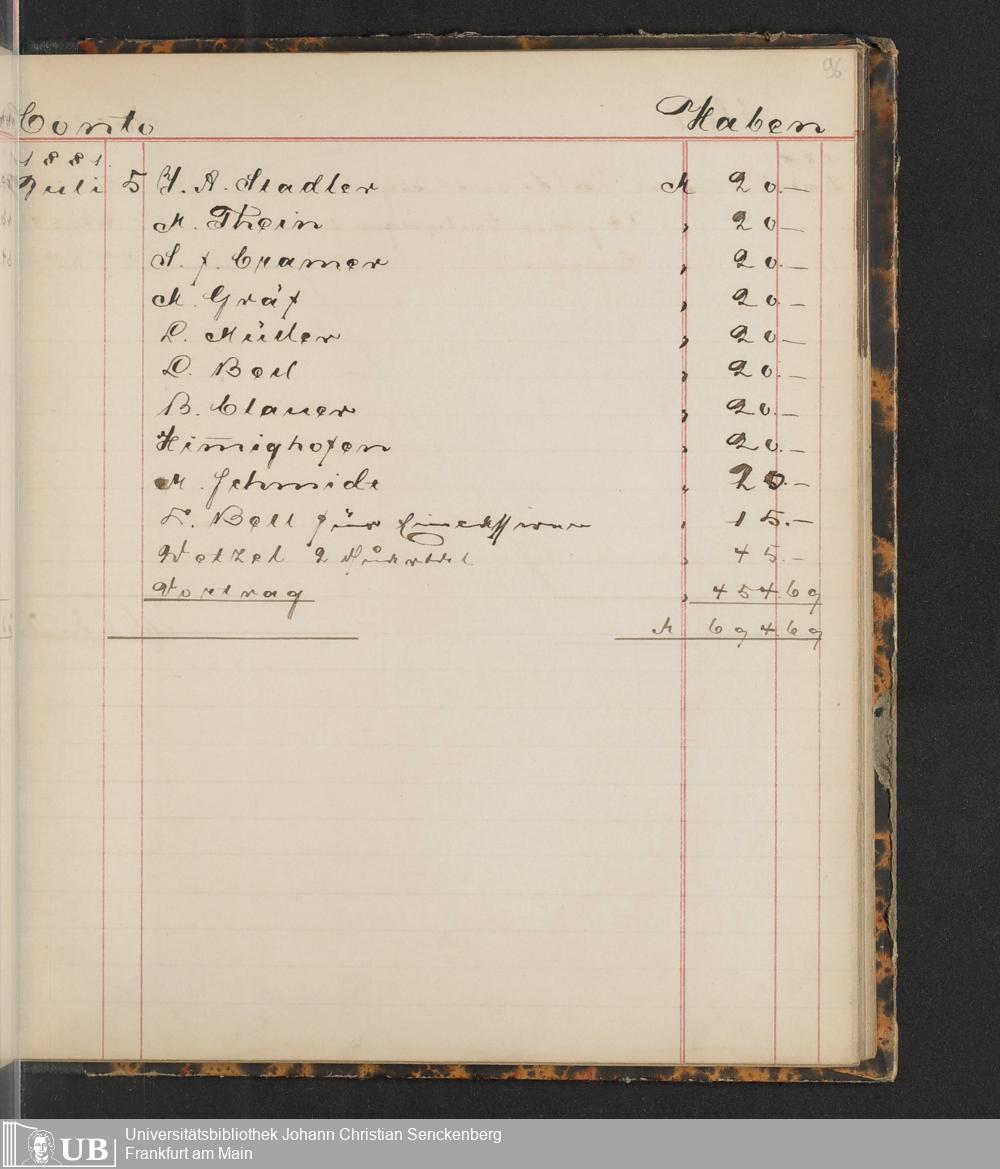 96
Conto Haben
1881.
Juli 5 J. A. Stadler M 20.—
M. Thein " 20.—
S. f. Cramer " 20.—
M. Gräf " 20.—
L. Müller " 20.—
L. Beil " 20.—
B. Clauer " 20.—
Him̅ighofen " 20.—
M. Schmidt " 20.—
L. Bell für " 15.—
Wetzel 2 " 45.—
Vortrag " 454.69
M 694.69
UB Universitätsbibliothek Johann Christian Senckenberg
Frankfurt am Main